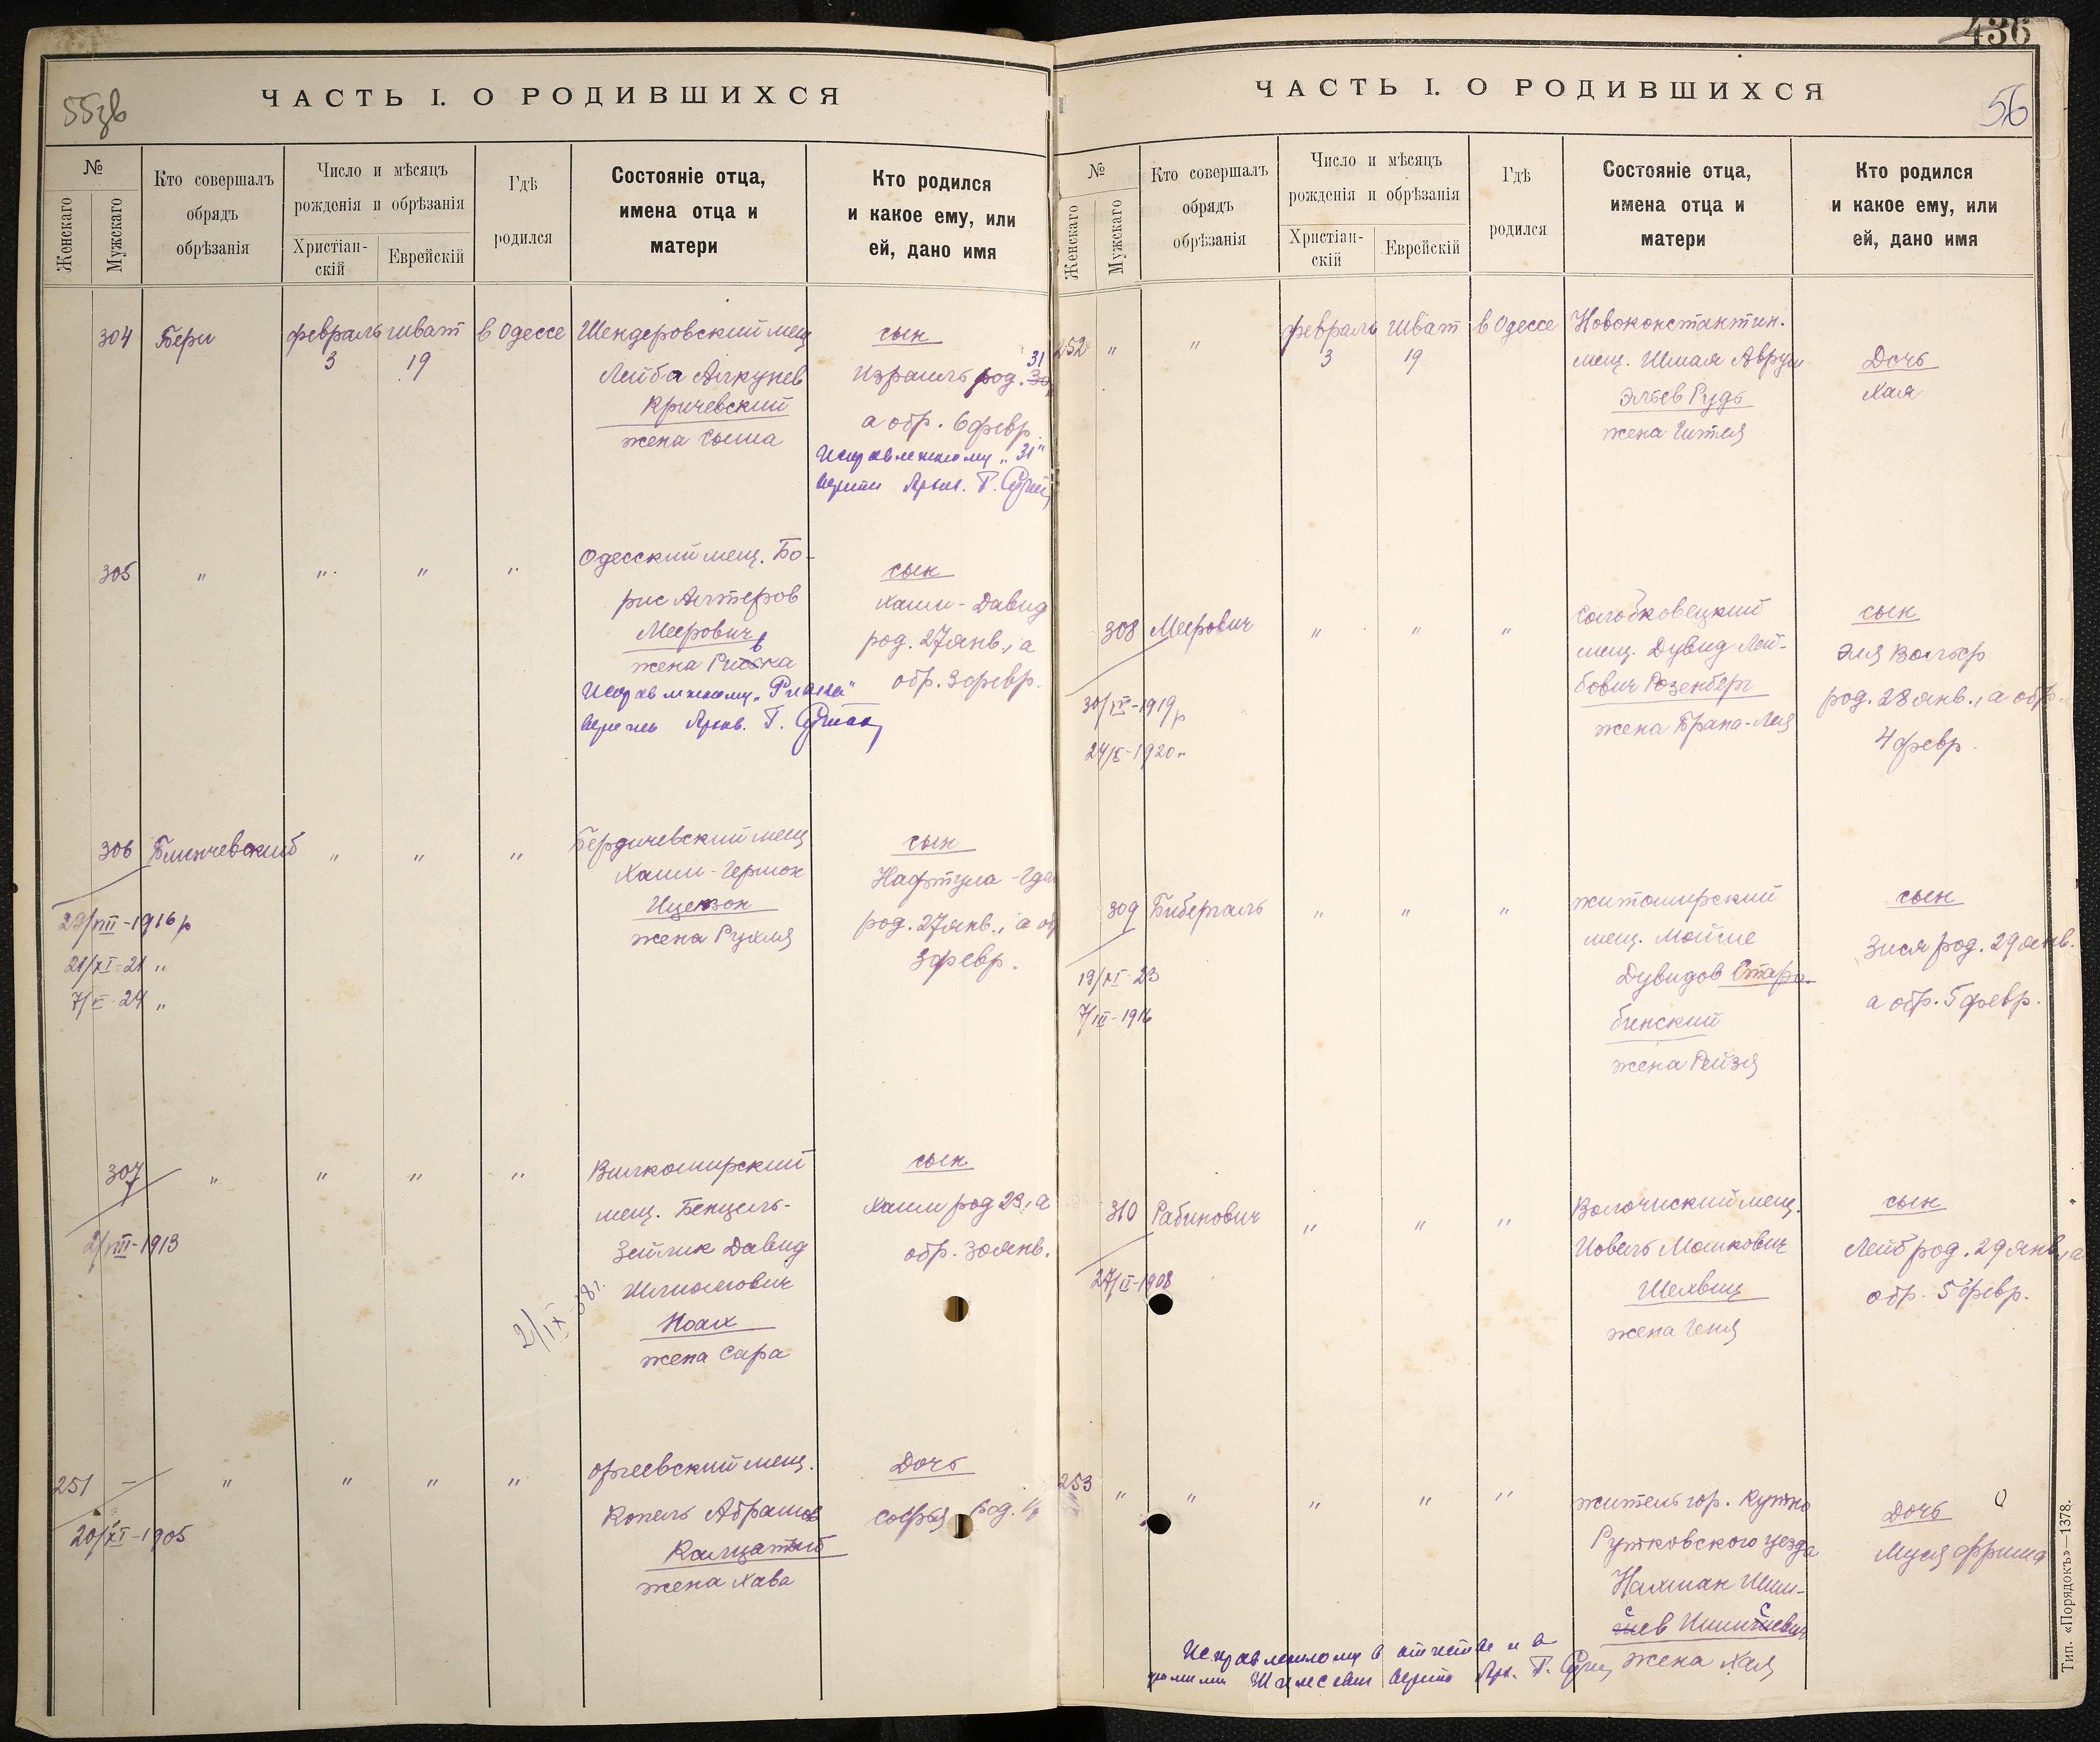 55зв
ЧАСТЬ I. О РОДИВШИХСЯ
№
Женскаго
Мужскаго
Кто совершалъ
обрядъ
обрѣзанія
Число и мѣсяцъ
рожденія и обрѣзанія
Христіан-
скій
Еврейскій
Гдѣ
родился
Состояніе отца,
имена отца и
матери
Кто родился
и какое ему, или
ей, дано имя
304 Бери февраль шват в Одессе Шендеровский мещ
3 19
Лейба Алкунев
Кричевский
жена Соша
сын
31
Израиль род. 30
а обр. 6 февр.
Исправленному „31"
верить Архив. Г.
305 " " " "
Одесский мещ. Бо-
рис Алтеров
Меерович
жена Ривка
Исправленному
верить Архив. Г.
сын
Хаим-Давид
род. 27 янв., а
обр. 3 февр.
306 Блинчевский " " "
29/VIII-1916 р
21/XI-21 "
7/V-24 "
Бердичевский мещ
Хаим-Гершон
Ицензон
жена Рухля
сын
Нафтула-Гда
род. 27 янв., а об
3 февр.
307 " " " "
2/VIII-1913
Вилкомирский
мещ. Бенцель-
Зейлик Давид
Шлиомович
Ноах
жена Сара
2/IX-38г.
сын
Хаим род 23, а
обр. 30 янв.
251 — " " " "
20/XI-1905
Оргеевский мещ.
Копель Абрамов
Калцатый
жена Хава
Дочь
Софья род. 1/
436
56
ЧАСТЬ I. О РОДИВШИХСЯ
№
Женскаго
Мужскаго
Кто совершалъ
обрядъ
обрѣзанія
Число и мѣсяцъ
рожденія и обрѣзанія
Христіан-
скій
Еврейскій
Гдѣ
родился
Состояніе отца,
имена отца и
матери
Кто родился
и какое ему, или
ей, дано имя
252 " " февраль шват в Одессе Новоконстантин.
3 19
мещ. Шмая Аврум
Эльев Рудь
жена Гитля
Дочь
Хая
308 Меерович " " "
30/IV-1919 р
24/X-1920 "
Солобковецкий
мещ. Дувид Лей-
бович Розенберг
жена Брана-Лея
сын
Эля Вольф
род. 28 янв., а обр.
4 февр.
309 Биберталь " " "
19/XI-23
7/III-1916
житомирский
мещ. Мойше
Дувидов Старо-
бинский
жена Рейзя
сын
Зися род. 29 янв.
а обр. 5 февр.
310 Рабинович " " "
27/II-1908
Волочиский мещ.
Иовель Мошкович
Шелвиц
жена Геня
сын
Лейб род. 29 янв., а
обр. 5 февр.
253 " " " " "
житель гор. Кутно
Рутковского уезда
Нахман Шим-
жена Хая
Дочь
Муся Фрима
Исправленному в отчестве и в
фамилии верить Арх. Г.
Тип. «Порядокъ»—1378.